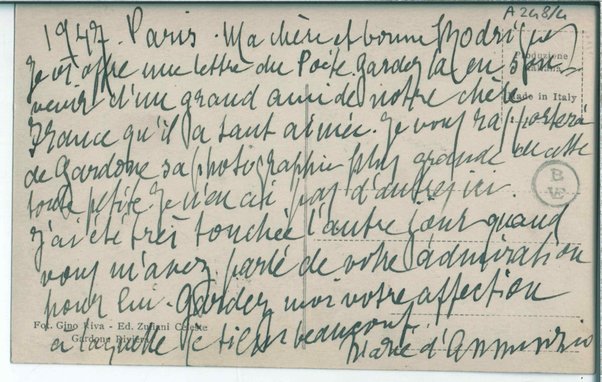 A 248/4
1947. Paris. Ma chère et bonne
Je vs offre une lettre du Poète. Gardez la en sou-
venir d'un grand ami de notre chère
France qu'il a tant aimée. Je vous rapporterai
de Gardone sa photographie plus grande de cette
toute petite. Je n'en ai pas d'autres ici.
J'ai été très touchée l'autre jour quand
vous m'avez parlé de votre admiration
pour lui. Gardez moi votre affection
à laquelle je tiens beaucoup.
Marie d'Annunzio
Produzione
Italiana
Made in Italy
B
VE
Fot. Gino Riva - Ed. Zufiani Celeste
Gardone Riviera